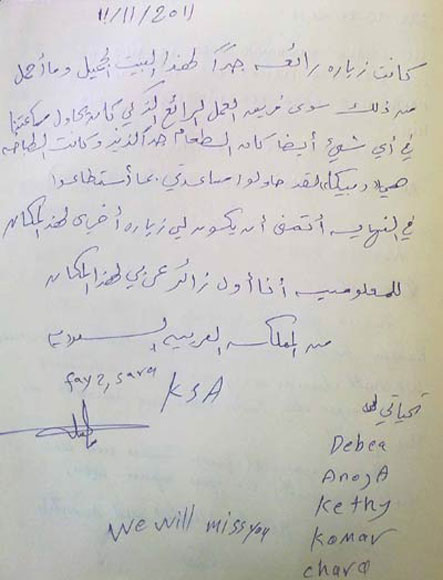 11/11/2011
كانت زياره رائعه جداً لهذا البيت الجميل وما أجمل
من ذلك سوى فريق العمل الرائع الذي كان يحاول مساعدتنا
في أي شيئ أيضا كان الطعام جداً لذيذ وكانت الطباخه
هي لقد حاولوا مساعدتي بما أستطاعوا
في النهايه أتمنى أن يكون لي زياره أخرى لهذا المكان
للمعلوميه أنا أول زائر عربي لهذا المكان
من المملكه العربيه السعوديه
fayz, sara
KSA
تحياتي
Debea
AnojA
Kethy
Komar
chara
we will miss you